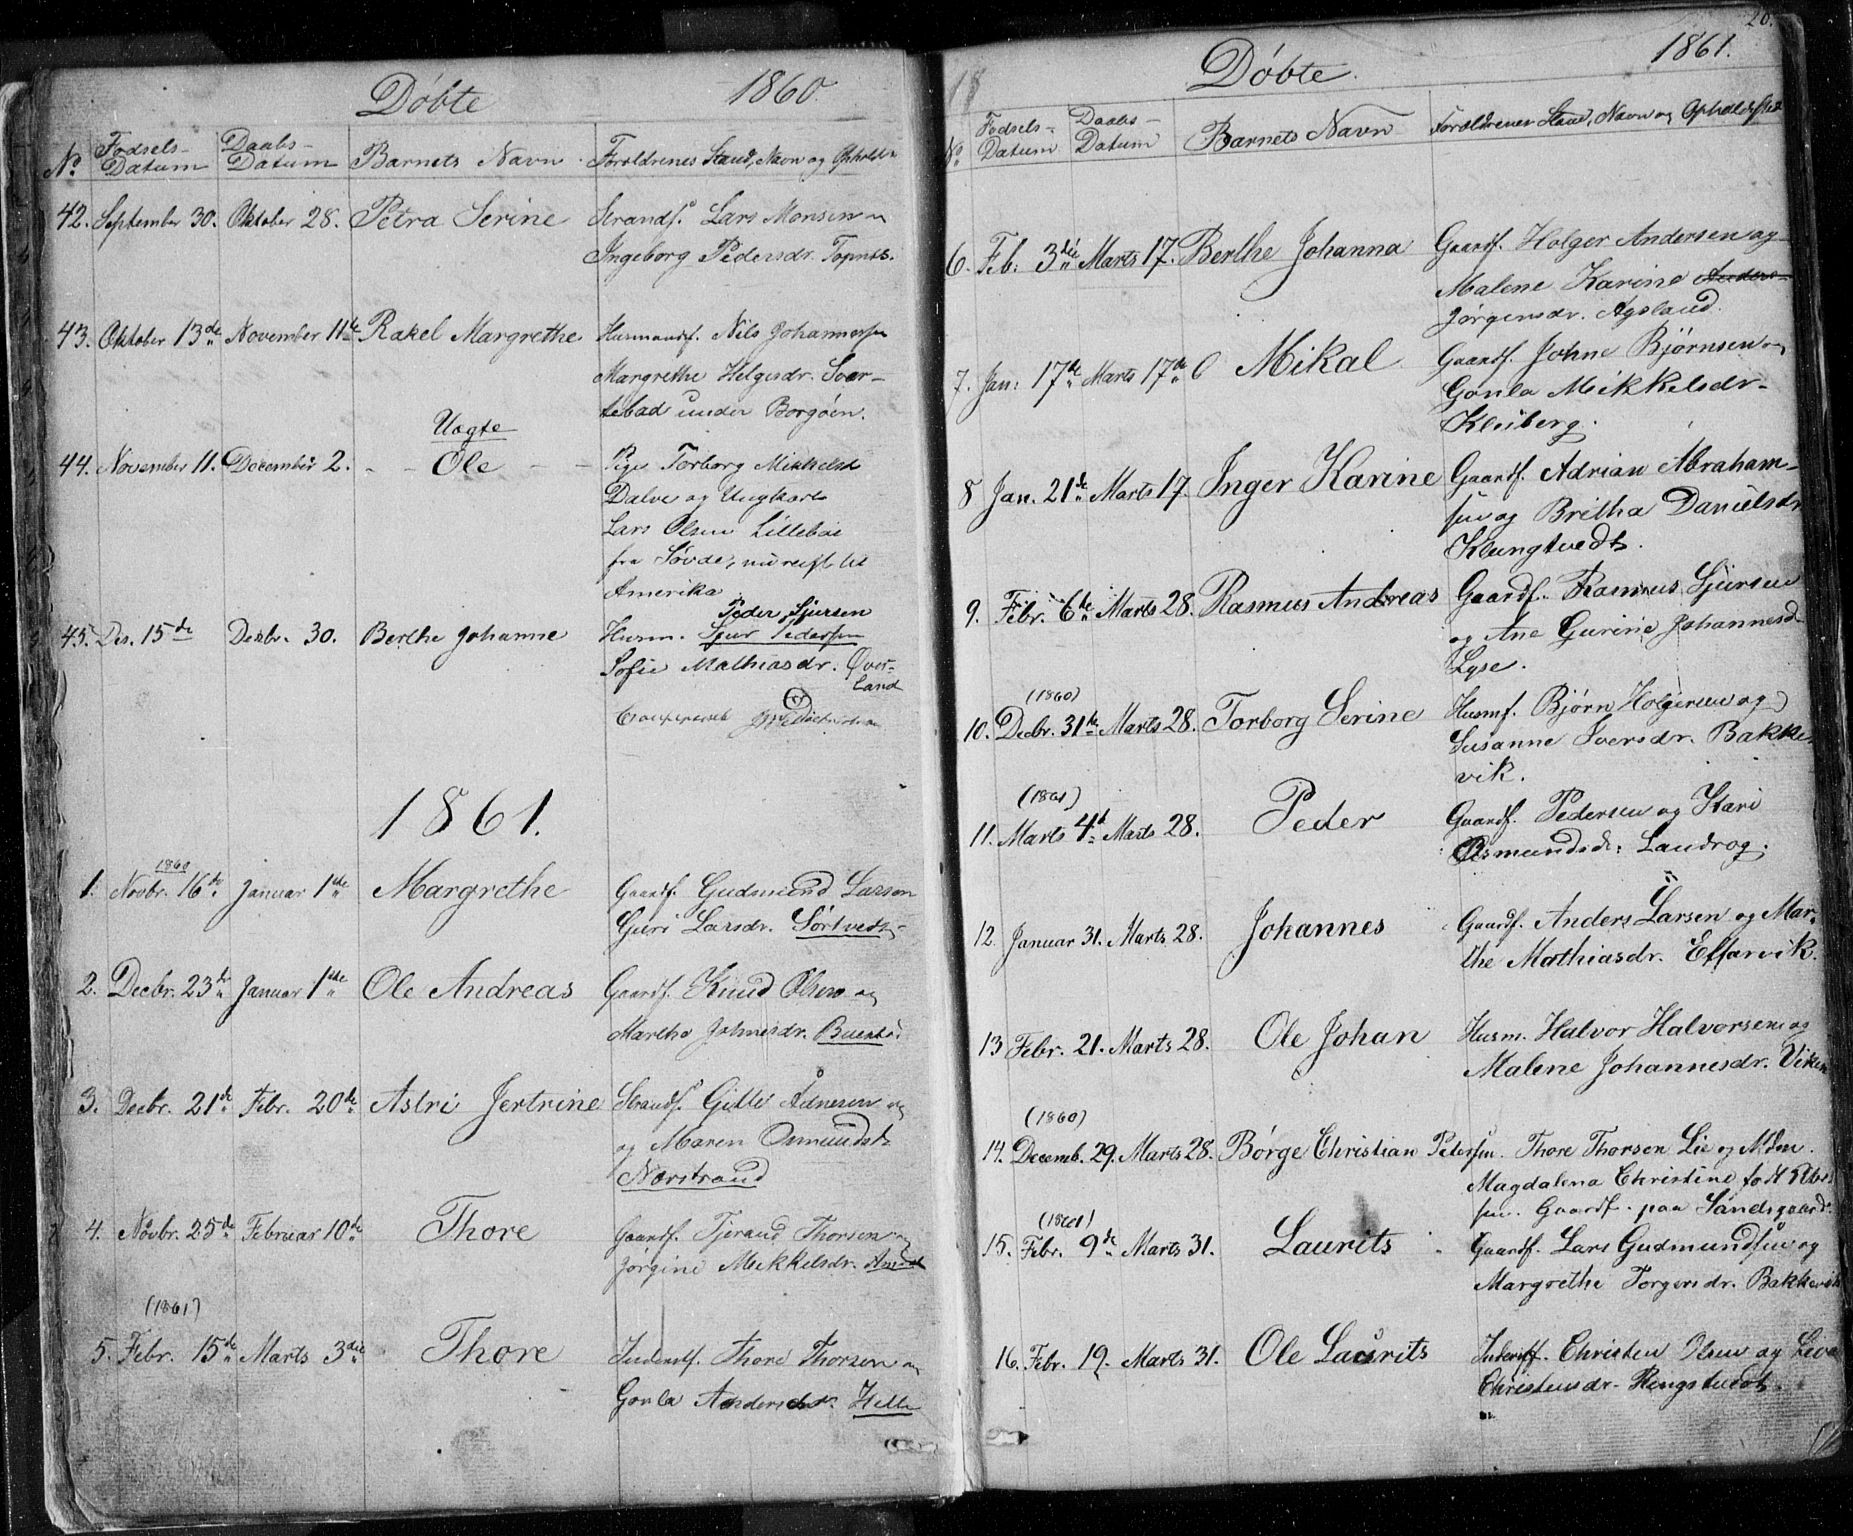 Döbte 1860.
No. Fodsels- Datum Daabs- Datum Barnets Navn. Foroldrenes Stand, Navn og Opholds
42. September 30. Oktober 28. Petra Serine Strands. Lars Monsen og
Ingeborg Pedersdr. Topnes.
43. Oktober 13de November 11te Rakel Margrethe Husmandf. Nils Johannessen
Margrethe Helgesdr. Svar-
tebad under Borgöen.
Uægte
44. November 11. December 2. - - Ole - - Pige Torborg Mikkelsd
Dalve og Ungkarl
Lars Olsen Lilleboe
fra Sövde, nu reist til
Amerika
Peder Sjursen
45. Des. 15de Desbr. 30. Berthe Johanne Husm. Sjur Pedersen
Sofie Mathiasdr. Över-
land
1861.
1860
1. Novbr. 16de Januar 1ste Margrethe Gaardf. Gudmund Larsen
Guri Larsdr. Sörtvedt
2. Decbr. 23de Januar 1ste Ole Andreas Gaardf. Knud Olsen og
Martha Johnesdr.
3. Decbr. 21de Febr. 20de Astri Jertrine Strands. Gitle Adnesen og
og Maren Osmundsdr
Norstrand
4. Novbr. 25de Februar 10de Thore Gaardf. Tjerand Thorsen og
Jörgine Mikkelsdr.
(1861)
5. Febr. 15de Marts 3die Thore Inderstf. Thore Thorsen og
Gonla Andersdr. Hille
20.
18 Döbte. 1861.
No Fodsels- Datum Daabs- Datum Barnets Navn Foroldrenes Stand, Navn og Opholdssted
6. Feb: 3die Marts 17. Berthe Johanna Gaardf. Holger Andersen og
Malene Karine Anders-
Jörgensdr. Agsland.
7. Jan: 17de Marts 17de Mikal Gaardf. Johne Björnsen og
Gonla Mikkelsdr-
Kleiberg.
8 Jan. 21de Marts 17. Inger Karine Gaardf. Adrian Abraham-
sen og Britha Danielsdr
Klungtvedt.
9. Febr. 6te Marts 28. Rasmus Andreas Gaardf. Rasmus Sjursen
og Ane Gurine Johannesd
Lyse.
(1860)
10. Decbr. 31te Marts 28. Torborg Serine Husmf. Björn Holgersen og
Susanne Iversdr. Bakke-
vik.
(1861)
11. Marts 4de Marts 28. Peder Gaardf. Pedersen og Kari
Osmundsdr: Landrog.
12. Januar 31. Marts 28. Johannes Gaardf. Anders Larsen og Mar-
the Mathiasdr. Effarvik.
13 Febr. 21. Marts 28. Ole Johan Husm. Halvor Halvorsen og
Malene Johannesdr. Viken
(1860)
14. Decemb. 29. Marts 28. Börge Christian Petersen. Thore Thorsen Lie og Mdm.
Magdalena Christine fodt
sen. Gaardf. paa Sandsgaard.
(1861)
15. Febr. 9de Marts 31. Laurits Gaardf. Lars Gudmundsen og
Margrethe Torgersdr. Bakkevik
16. Febr. 19. Marts 31. Ole Laurits Inderstf. Christen Olsen og Liva
Christensdr. Ringstvedt.